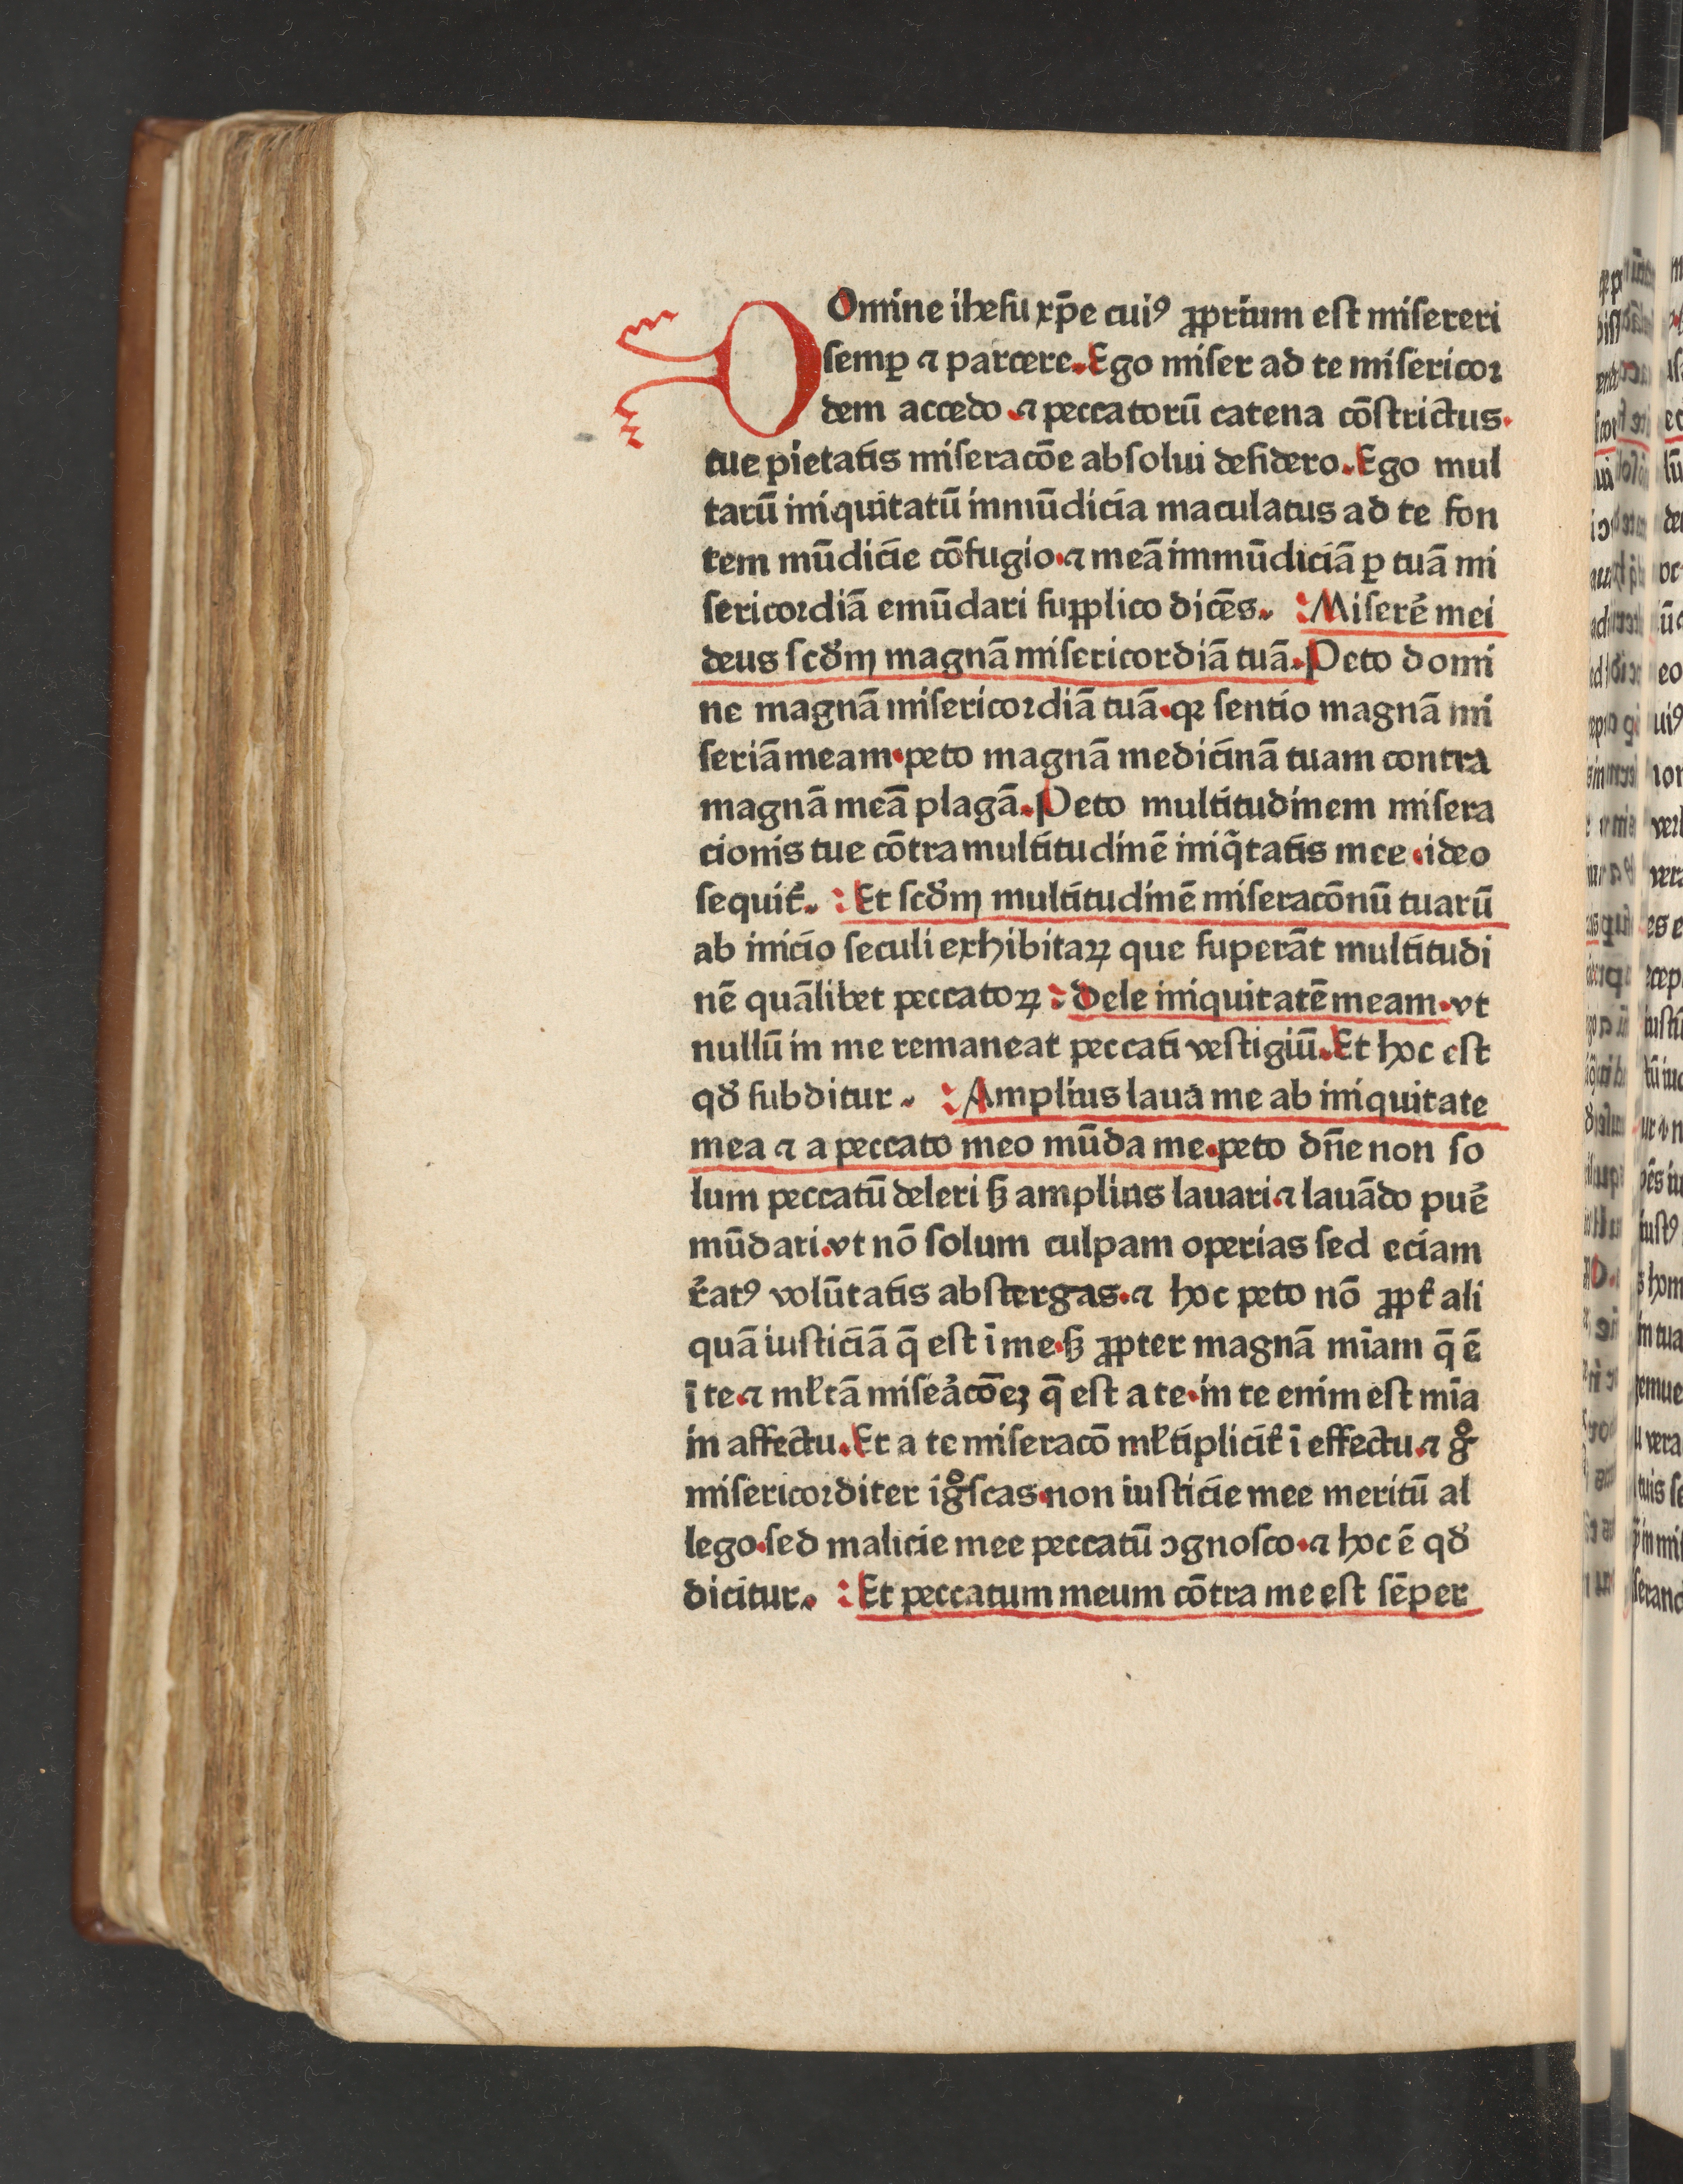 DOmine ihesu xp̄e cuiꝰ ꝓprium est misereri
semꝑ ⁊ parcere. Ego miser ad te misericor
dem accedo ⁊ peccatorū catena cōstrictus.
tue pietatis miseracōe absolui desidero. Ego mul
tarū iniquitatū inmūdicia maculatus ad te fon
tem mūdicie cōfugio. ⁊ meā immūdiciā ꝑ tuā mi
sericordiā emūdari supplico dicēs. Miserē mei
deus scd̛m magnā misericordiā tuā. Peto domi
ne magnā misericordiā tuā. qꝛ sentio magnā mi
seriā meam. peto magnā medicinā tuam contra
magnā meā plagā. Peto multitudinem misera
cionis tue cōtra multitudinē iniq̄tatis mee. ideo
sequit̛. Et scd̛m multitudinē miseracōnū tuarū
ab inicio seculi exhibitaꝝ que superāt multitudi
nē quālibet peccatoꝝ: dele iniquitatē meam. vt
nullū in me remaneat peccati vestigiū. Et hoc est
qd̛ subditur. Amplius laua me ab iniquitate
mea ⁊ a peccato meo mūda me. peto dn̄e non so
lum peccatū deleri sꝫ amplius lauari. ⁊ lauādo puē
mūdari. vt nō solum culpam operias sed eciam
r̛atꝰ volūtatis abstergas. ⁊ hoc peto nō ꝓpt̛ ali
quā iusticiā q̄ est ī me. sꝫ ꝓpter magnā miam q̄ ē
ī te. ⁊ ml̛tā mise̛acōeꝫ q̄ est a te. in te enim est mīa
in affectu. Et a te miseracō ml̛tiplicit̛ ī effectu. ⁊ gͦ
misericorditer igͦscas. non iusticie mee meritū al
lego. sed malicie mee peccatū ꝯgnosco. ⁊ hoc ē qd̛
dicitur. Et peccatum meum cōtra me est sēper